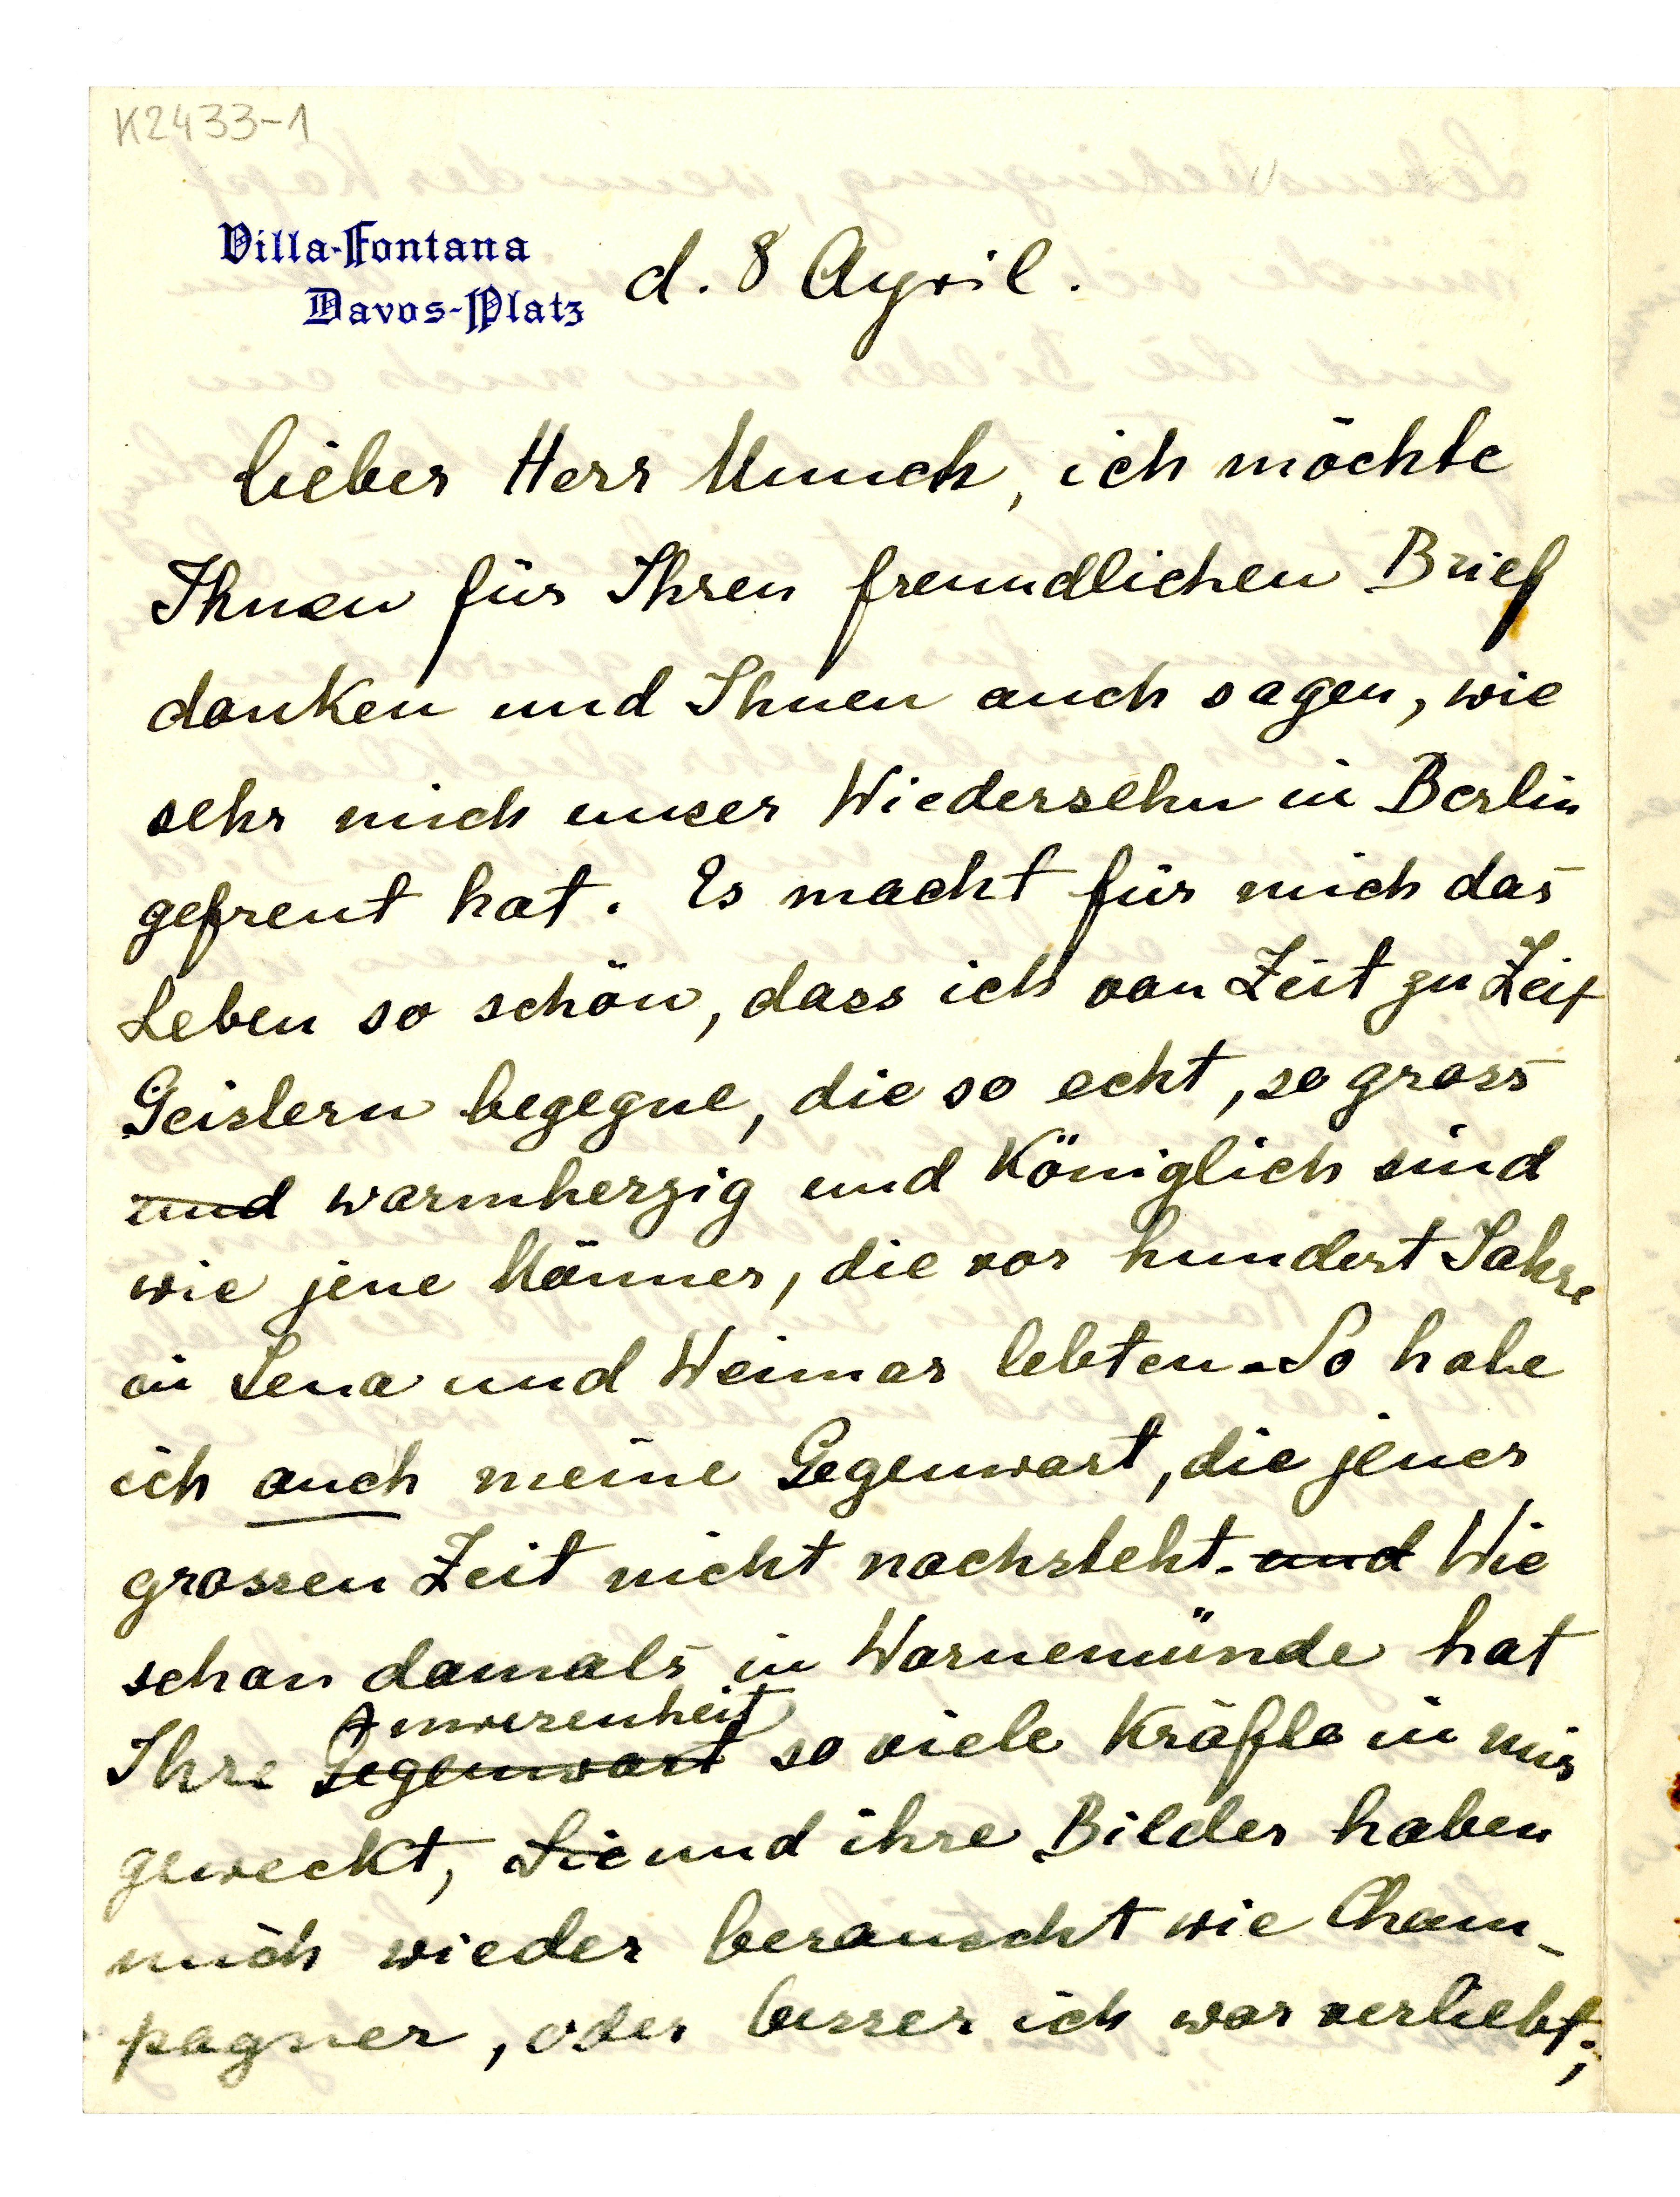 K2433-1
Villa-Fontana
Davos-Platz
d. 8 April.
lieber Herr Munch, ich möchte
Ihnen für Ihren freundlichen Brief
danken und Ihnen auch sagen, wie
sehr mich unser Wiedersehn in Berlin
gefreut hat. Es macht für mich das
Leben so schön, dass ich von Zeit zu Zeit
Geistern begegne, die so echt, so gross
und warmherzig und Königlich sind
wie jene Männer, die vor hundert Jahre
in Jena und Weimar lebten. So habe
ich auch meine Gegenwart, die jener
grossen Zeit nicht nachsteht. und Wie
schon damals in Warnemünde hat
Anwesenheit
Ihre Gegenwart so viele Kräfte in mir
geweckt, Sie und ihre Bilder haben
mich wieder berauscht wie Cham-
pagner, oder besser ich war verliebt;